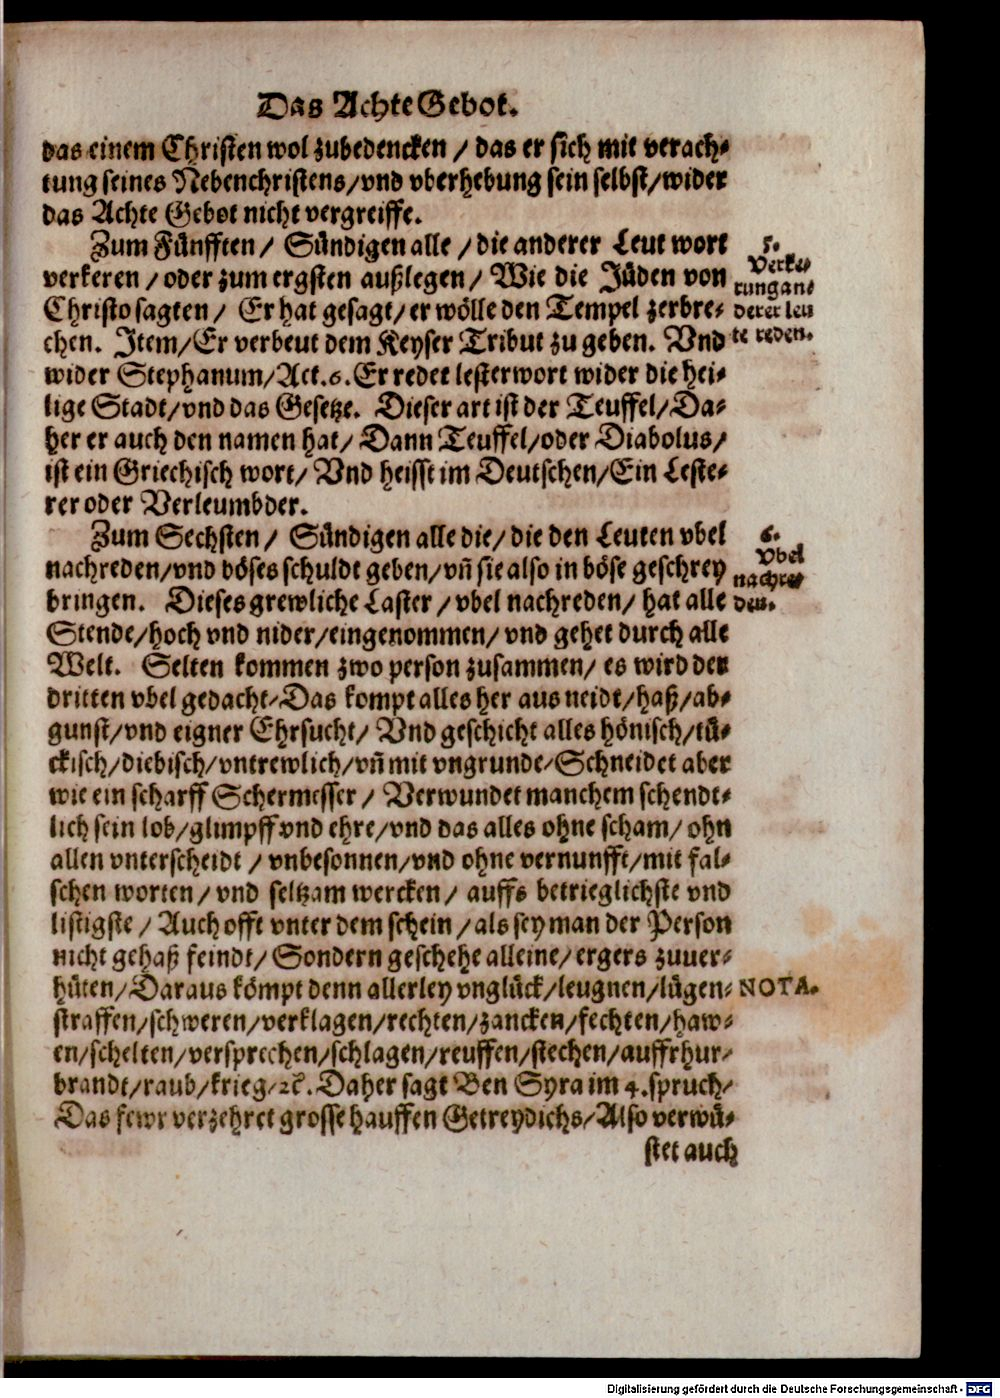 Das Achte Gebot.
das einem Christen wol zubedencken / das er sich mit verach⸗
tung seines Nebenchristens/vnd vberhebung sein selbst/wider
das Achte Gebot nicht vergreiffe.
Zum Fünfften / Sündigen alle / die anderer Leut wort
verkeren / oder zum ergsten außlegen / Wie die Jüden von
Christo sagten / Er hat gesagt/er wölle den Tempel zerbre⸗
chen. Item/Er verbeut dem Keyser Tribut zu geben. Vnd
wider Stephanum/Act.6.Er redet lesterwort wider die hei⸗
lige Stadt/vnd das Gesetze. Dieser art ist der Teuffel/Da⸗
her er auch den namen hat/ Dann Teuffel/oder Diabolus/
ist ein Griechisch wort/ Vnd heisst im Deutschen/Ein Leste⸗
rer oder Verleumbder.
5.
Verke⸗
rung an⸗
derer leu
te reden.
Zum Sechsten / Sündigen alle die/ die den Leuten vbel
nachreden/vnd böses schuldt geben/vñ sie also in böse geschrey
bringen. Dieses grewliche Laster / vbel nachreden/ hat alle
Stende/hoch vnd nider/eingenommen/ vnd gehet durch alle
Welt. Selten kommen zwo person zusammen/ es wird der
dritten vbel gedacht/Das kompt alles her aus neidt/haß/ab⸗
gunst/vnd eigner Ehrsucht/ Vnd geschicht alles hönisch/tü⸗
ckisch/diebisch/vntrewlich/vñ mit vngrunde/Schneidet aber
wie ein scharff Schermesser / Verwundet manchem schendt⸗
lich sein lob/glimpff vnd ehre/vnd das alles ohne scham/ ohn
allen vnterscheidt / vnbesonnen/vnd ohne vernunfft/mit fal⸗
schen worten/ vnd seltzam wercken/ auffs betrieglichste vnd
listigste / Auch offt vnter dem schein / als sey man der Person
nicht gehaß feindt/ Sondern geschehe alleine/ ergers zuuer⸗
hüten/ Daraus kömpt denn allerley vnglück/leugnen/lügen⸗
straffen/schweren/verklagen/rechten/zancken/fechten/haw⸗
en/schelten/versprechen/schlagen/reuffen/stechen/auffrhur/
brandt/raub/krieg/ꝛc. Daher sagt Ben Syra im 4.spruch/
Das fewr verzehret grosse hauffen Getreydichs/Also verwü⸗
stet auch
6.
Vbel
nachre⸗
den.
NOTA.
Digitalisierung gefördert durch die Deutsche Forschungsgemeinschaft - DFG